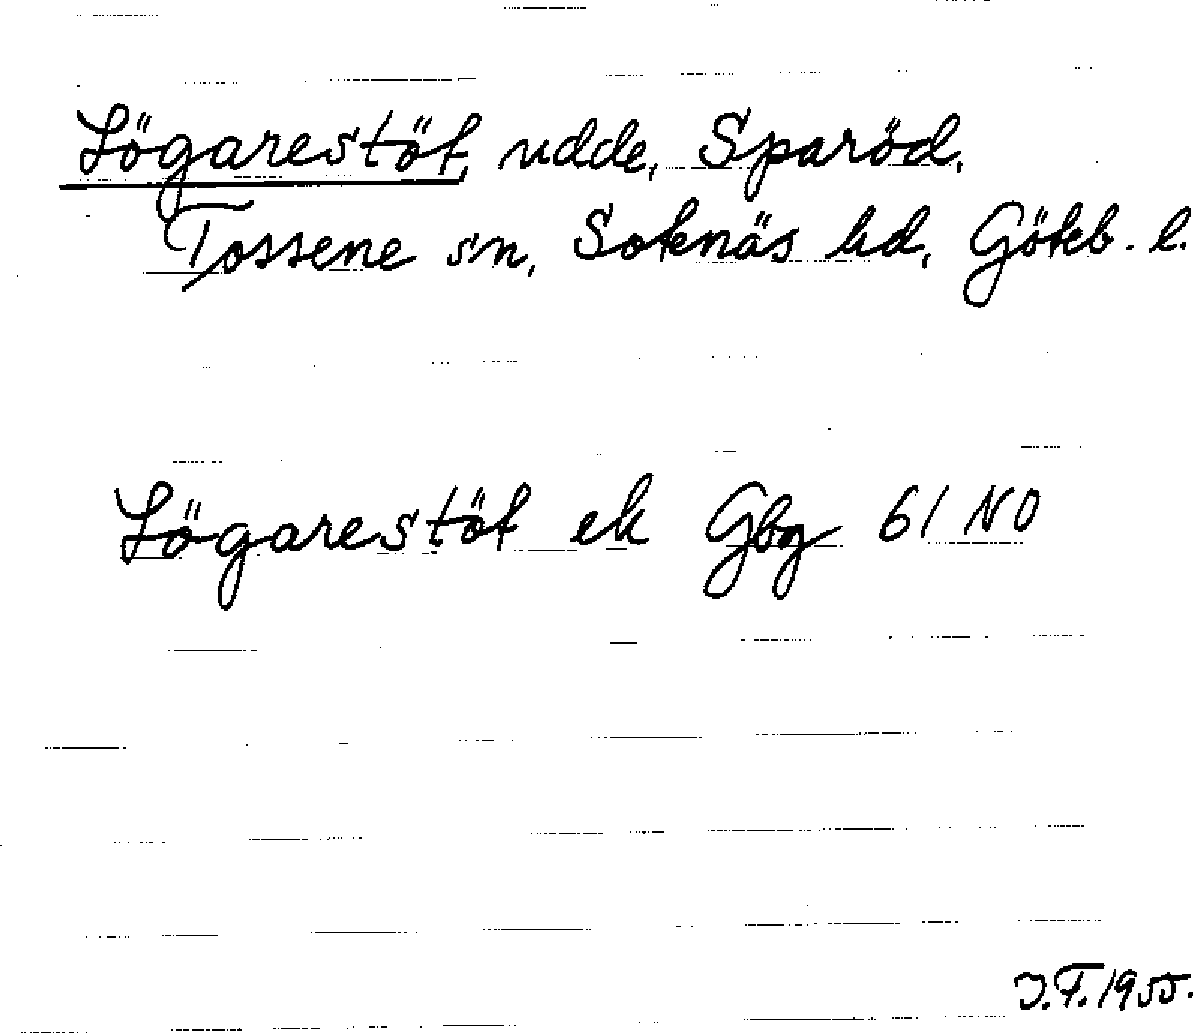 Lögarestöt, udde, Sparöd,
Tossene sn, Sotenäs hd, Götеb. l.
Lögarestöt ek Gbg 61 NO
J.F. 1955.